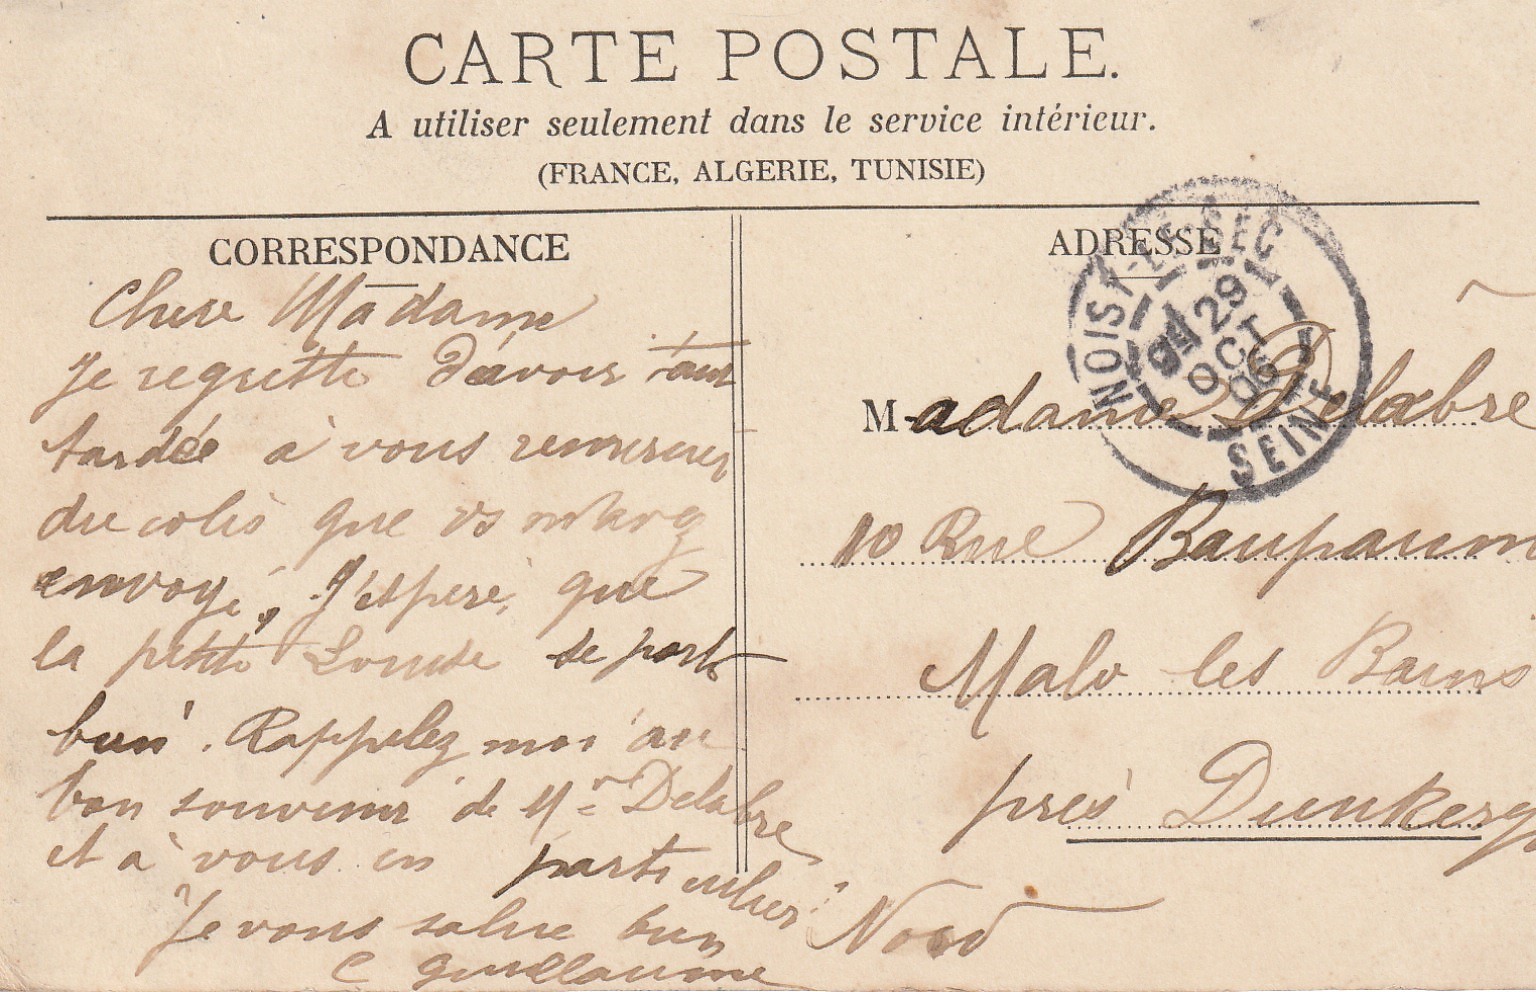 CARTE POSTALE.
A utiliser seulement dans le service intérieur.
(FRANCE, ALGERIE, TUNISIE)
CORRESPONDANCE
Chere Madame
Je regrette d'avoir tant
tardée à vous remercier
du colis que vs m'avez
envoyé, J'espere, que
la petite Louise se porte
bien. Rappelez moi au
bon souvenir de Mr Delabre
et à vous en particulier
Je vous salue bien
C Guillaume
ADRESSE
NOISY-LE-SEC
29
OCT
06
SEINE
Madame Delabre
10 Rue Baupaum
Malo les Bains
près Dunkerq
Nord